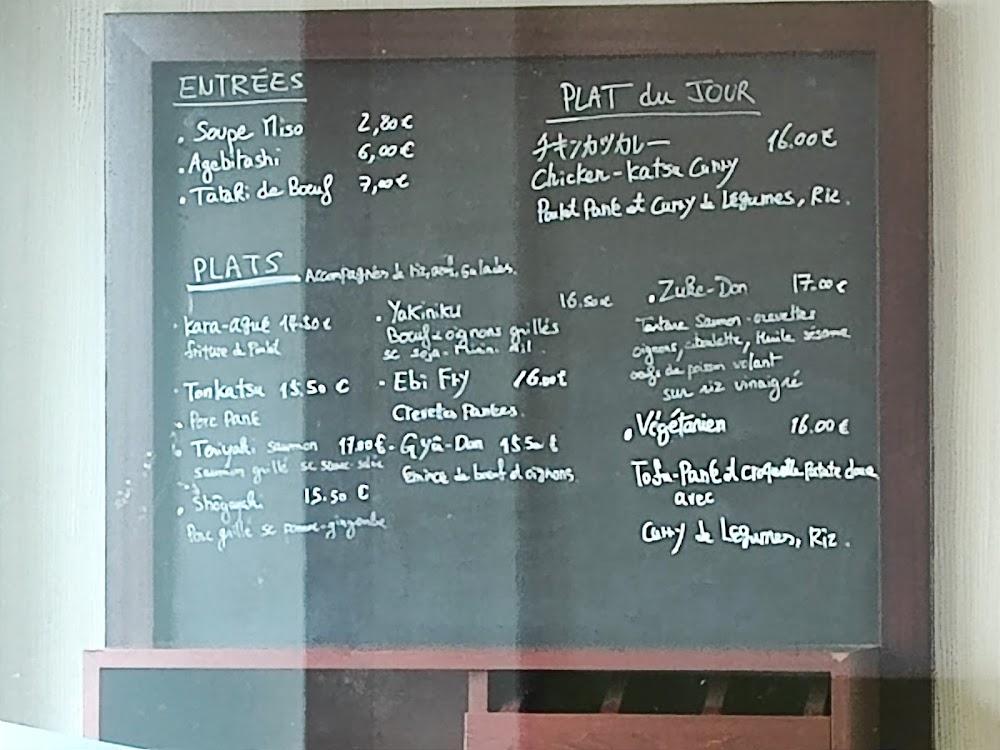 ENTRÉES
. Soupe Miso 2,80€
. Agebitashi 6,00€
. Tataki de Bœuf 7,00€
PLAT du JOUR
チキンカツカレー 16.00€
Chicken-Katsu Curry
Poulet Pané et Curry de Légumes, Riz.
PLATS Accompagnés de riz, salades.
. Kara-agué 14.50€
friture de Poulet
. Tonkatsu 15.50 €
. Porc Pané
. Teriyaki saumon 17.00€
saumon grillé sc
. Shōgayaki 15.50 €
Porc grillé sc gingembre
. Yakiniku 16.50€
Bœuf & oignons grillés
sc soja-Mirin. Ail.
. Ebi Fry 16.00€
Crevettes Panées.
. Gyū-Don 15.50€
Emincé de bœuf et oignons.
. Zuke-Don 17.00€
Tartare Saumon-crevettes
oignons, ciboulette, Huile sésame
œufs de poisson volant
sur riz vinaigré
. Végétarien 16.00€
Tofu-Pané et croquette Patate douce
avec
Curry de Légumes, Riz.